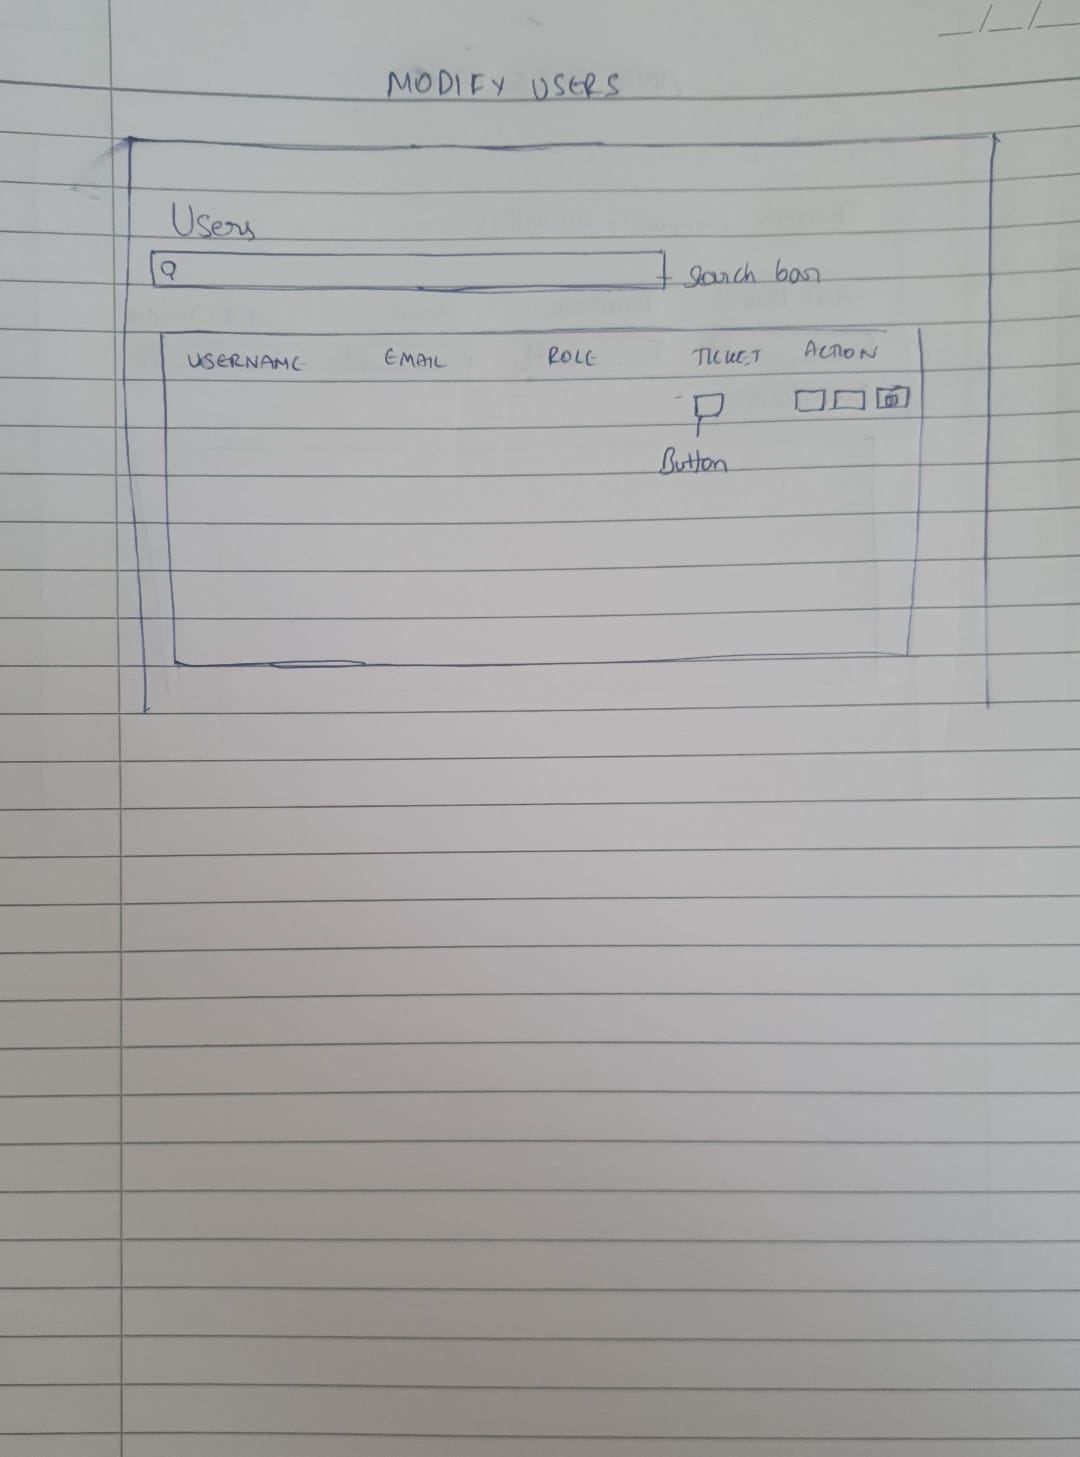 MODIFY USERS
Users
Search bar
USERNAME EMAIL ROLE TICKET ACTION
Button